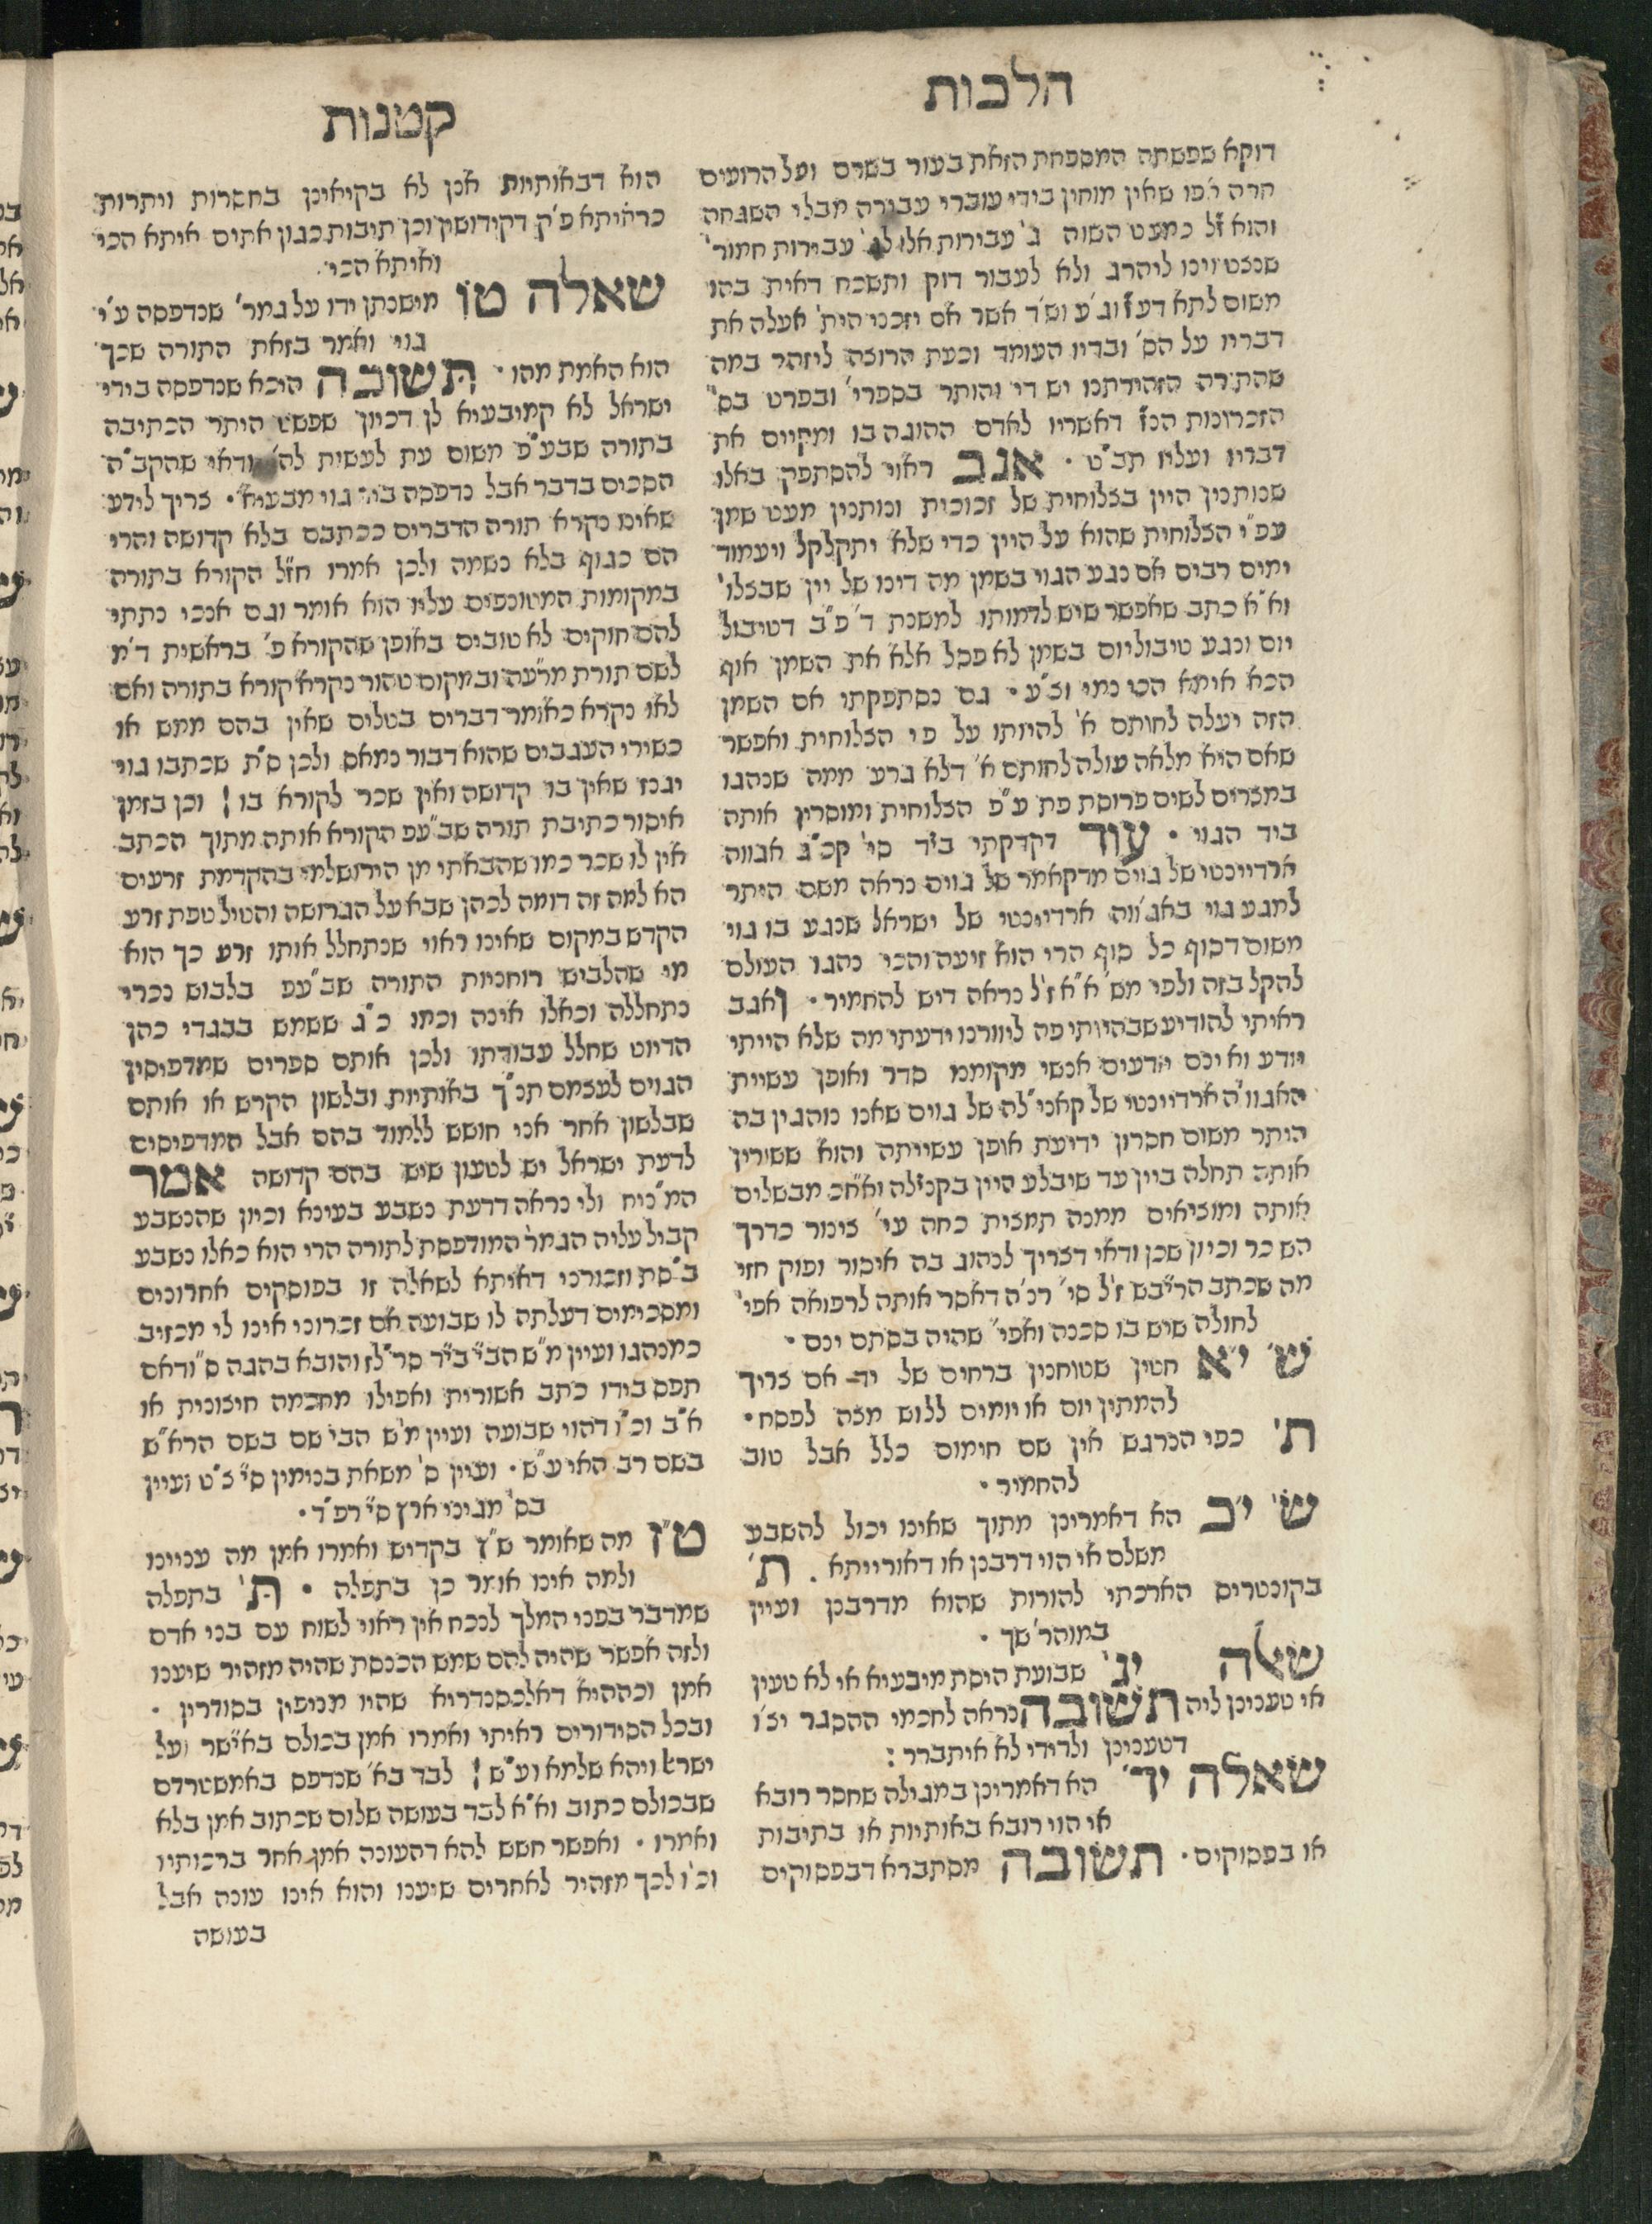 הלכות
קטנות
דוקא שפשתה המספחת הזאת בעור בשרם ועל הרועים
חרה א׳פו שאין מוחין בידי עוברי עבירה מבלי השגחה
והוא ז״ל כמעט השוה ג׳ עבירות אלו לג׳ עבירות חמור׳
שנצטוינו ליהרג ולא לעבור דוק ותשכח דאית בהו
משום לתא דע״ז וג״ע וש״ד אשר אם יזכני הית׳ אעלה את
דבריו על הס׳ ובדיו העומד וכעת הרוצה ליזהר במה
שהתירה הזהירתנו יש די והותר בספרי׳ ובפרט בס׳
הזכרונות הנז׳ דאשריו לאדם ההוגה בו ומקיים את
דבריו ועליו תב״ט • אגב ראוי להסתפק באלו
שנותנין היין בצלוחית של זכוכית ונותנין מעט שמן
עפ״י הצלוחית שהוא על היין כדי שלא יתקלקל ויעמוד
ימים רבים אם נגע הגוי בשמן מה דינו של יין שבצלו׳
וא״א כתב שאפשר שיש לדמותו למשנת ד׳ פ״ב דטיבול
יום ונגע טיבול יום בשמן לא פסל אלא את השמן אוף
הכא אימא הכי נמי וצ״ע • גם נסתפקתי אם השמן
הזה יעלה לחותם א׳ להיותו על פי הצלוחית ואפשר
שאם היא מלאה עולה לחותם א׳ דלא גרע ממה שנהגו
במצרים לשים פרוסת פת ע״פ הצלוחית ומוסרין אותה
ביד הגוי • עוד דקדקתי ב״ד סי׳ קכ״ג אגווה
ארדיינטי של גוים מדקאמר של גוים נראה משם היתר
למגע גוי באג׳ווה ארדיינטי של ישראל שנגע בו גוי
משום דסוף כל סוף הרי הוא זיעה והכי נהגו העולם
להקל בזה ולפי מש׳ א״א ז״ל נראה דיש להחמיר • ואגב
ראיתי להודיע שבהיותי פה ליוורנו ידעתי מה שלא הייתי
יודע ואינם יודעים אנשי מקומנו סדר ואופן עשיית
האגוו״ה ארדיינטי של קאני״לה של גוים שאנו נוהגין בה
היתר משום חסרון ידיעת אופן עשייתה והוא ששורין
אותה תחלה ביין עד שיבלע היין בקנילה וא״חכ מבשלים
אותה ומוציאים ממנה תמצית כחה עי׳ צינור כדרך
השכר וכיון שכן ודאי דצריך לנהוג בה איסור ופוק חזי
מה שכתב הריב״ש ז״ל סי׳ רנ״ה דאסר אותה לרפואה אפי׳
לחולה שיש בו סכנה ואפי׳ שהיה בסתם ינם •
ש׳ י״א חטין שטוחנין ברחים של יד אם צריך
להמתין יום או יומים ללוש מצה לפסח •
ת׳ כפי הנרגש אין שם חימום כלל אבל טוב
להחמיר •
ש׳ י״ב הא דאמרינן מתוך שאינו יכול להשבע
משלם אי הוי דרבנן או דאורייתא . ת׳
בקונטריס הארכתי להורות שהוא מדרבנן ועיין
במוהר׳שך •
שאלה יג׳ שבועת היסת מיבעיא אי לא טעין
אי טענינן ליה תשובה נראה לחכמי ההסגר יצ״ו
דטענינן ולדידי לא איתברר :
שאלה יד׳ הא דאמרינן במגילה שחסר רובא
אי הוי רובא באותיות או בתיבות
או בפסוקים • תשובה מסתברא דבפסוקים
הוא דבאותיות אנן לא בקיאינן בחסרות ויתרות
כדאיתא פ״ק דקידושין וכן תיבות כגון אתים איתא הכי
ואיתא הכי •
שאלה טו מושכתן ידו על גמר׳ שנדפסה ע״י
גוי ואמר בזאת התורה שכך
הוא האמת מהו • תשובה היכא שנדפסה בידי
ישראל לא קמיבעיא לן דכיון שפשט היתר הכתיבה
בתורה שבע״פ משום עת לעשות לה׳ ודאי שהקב״ה
הסכים בדבר אבל נדפסה ביד גוי מבעיא • צריך לידע
שאינו נקרא תורה הדברים ככתבם בלא קדושה והרי
הם כגוף בלא נשמה ולכן אמרו חז״ל הקורא בתורה
במקומות המטונפים עליו הוא אומר וגם אנכי נתתי
להם חוקים לא טובים באופן שהקורא פ׳ בראשית ד״מ
לשם תורת מרע״ה ובמקום טהור נקרא קורא בתורה ואם
לאו נקרא כאומר דברים בטלים שאין בהם ממש או
כשירי העגבים שהוא דבור נמאס ולכן ס״ת שכתבו גוי
יגנז שאין בו קדושה ואין שכר לקורא בו ! וכן בזמן
איסור כתיבת תורה שב״עפ הקורא אותה מתוך הכתב
אין לו שכר כמו שהבאתי מן הירושלמי בהקדמת זרעים
הא למה זה דומה לכהן שבא על הגרושה והטיל טפת זרע
הקדש במקום שאינו ראוי שנתחלל אותו זרע כך הוא
מי שהלביש רוחניות התורה שב״עפ בלבוש נכרי
נתחללה וכאלו אינה וכמו כ״ג ששמש בבגדי כהן
הדיוט שחלל עבודתו ולכן אותם ספרים שמדפיסין
הגוים לעצמם תנ״ך באותיות ובלשון הקדש או אותם
שבלשון אחר אני חושש ללמוד בהם אבל המדפיסים
לדעת ישראל יש לטעון שיש בהם קדושה אמר
המ״ניח ולי נראה דדעת נשבע בעינא וכיון שהנשבע
קביל עליה הגמר׳ המודפסת לתורה הרי הוא כאלו נשבע
ב״סת וזכורני דאיתא לשאלה זו בפוסקים אחרונים
ומסכימים דעלתה לו שבועה אם זכרוני אינו לי מכזיב
כמנהגו ועיין מ״ש הב״י בי״ד סר״לז והובא בהגה ס״ו דאם
תפס בידו כתב אשורית ואפילו מחכמה חיצונית או
א״ב וכ״ו דהוי שבועה ועיין מ״ש הב״י שם בשם הרא״ש
בשם רב האי ע״ש • ועיין ס׳ משאת בנימין סי׳ צ״ט ועיין
בס׳ מגיני ארץ סי׳ רפ״ד •
ט״ז מה שאומר ש״ץ בקדיש ואמרו אמן מה עניינו
ולמה אינו אומר כן בתפלה • ת׳ בתפלה
שמדבר בפני המלך לנכח אין ראוי לשוח עם בני אדם
ולזה אפשר שהיה להם שמש הכנסת שהיה מזהיר שיענו
אמן וכההיא דאלכסנדריא שהיו מניפין בסודרין •
ובכל הסידורים ראיתי ואמרו אמן בכולם בא״שר ועל
ישרא׳ ויהא שלמא וע״ש ! לבד בא׳ שנדפס באמשטרדם
שבכולם כתוב וא״א לבד בעושה שלום שכתוב אמן בלא
ואמרו • ואפשר חשש להא דהעונה אמן אחר ברכותיו
וכ״ו לכך מזהיר לאחרים שיענו והוא אינו עונה אבל
בעושה